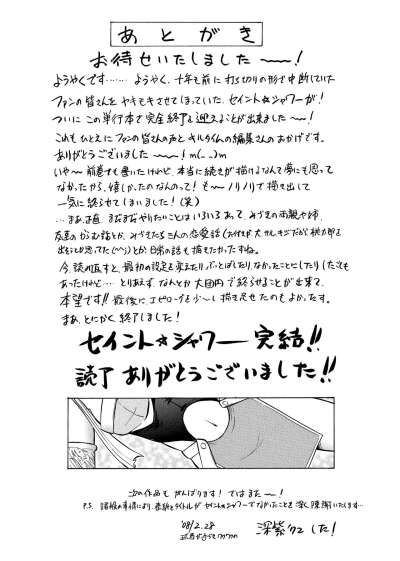 あとがき
お待せいたしました〜〜!
ようやくです……ようやく、十年も前に打ち切りの形で中断していた
ファンの皆さんをヤキモキさせてしまっていた、セイント☆シャワーが!
ついにこの単行本で完全終了を迎えることが出来ました〜!
これもひとえにファンの皆さんの声とキルタイムの編集さんのおかげです。
ありがとうございました〜〜!m(_ _)m
いや〜前巻でも書いたけれど、本当に続きが描けるなんて夢にも思って
なかったから、嬉しかったのなんのって!も〜ノリノリで描き出して
一気に終らせてしまいました!(笑)
…まあ、正直、まだまだやりたいことはいろいろあって、みさきの両親や姉、
友里のからむ話とか、みさきたち三人の恋愛話
出そうとか思ってた(^^;)とか、日常の話も描きたかったですね。
今、読み直すと、最初の設定を変えたりバッとばしたり、なかったことにしたり(た)も
あったけど…とりあえず、なんとか大団円で終らせることが出来て、
本望です!!最後に、エピローグも少〜し描き足せたのもよかったす。
まあ、とにかく終了しました!
セイント☆シャワー 完結!!
読了ありがとうございました!!
次の作品もがんばります!ではまた〜!
P.S. 諸般の事情により、表紙とタイトルがセイント☆シャワーでなかったことを深く陳謝いたします…
'08/2.28
深紫 でした!